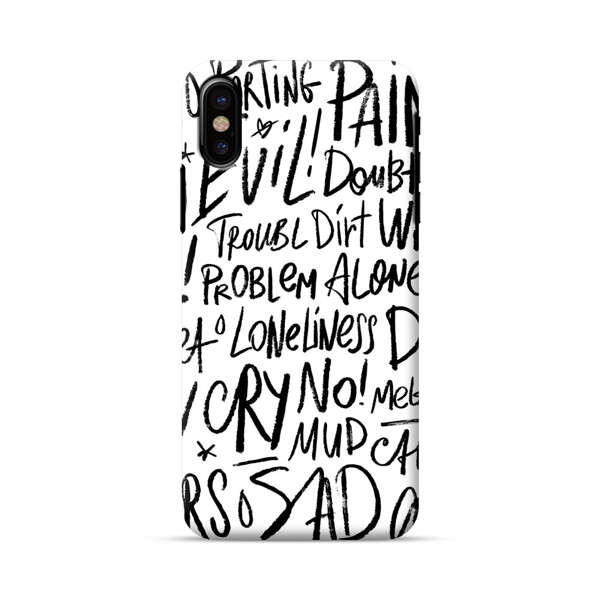 PARTING PAIN
EVIL! DOUBT
TROUBL DIRT W
! PROBLEM ALONE
LONELINESS D
CRY NO! MEL
MUD CA
RS SAD